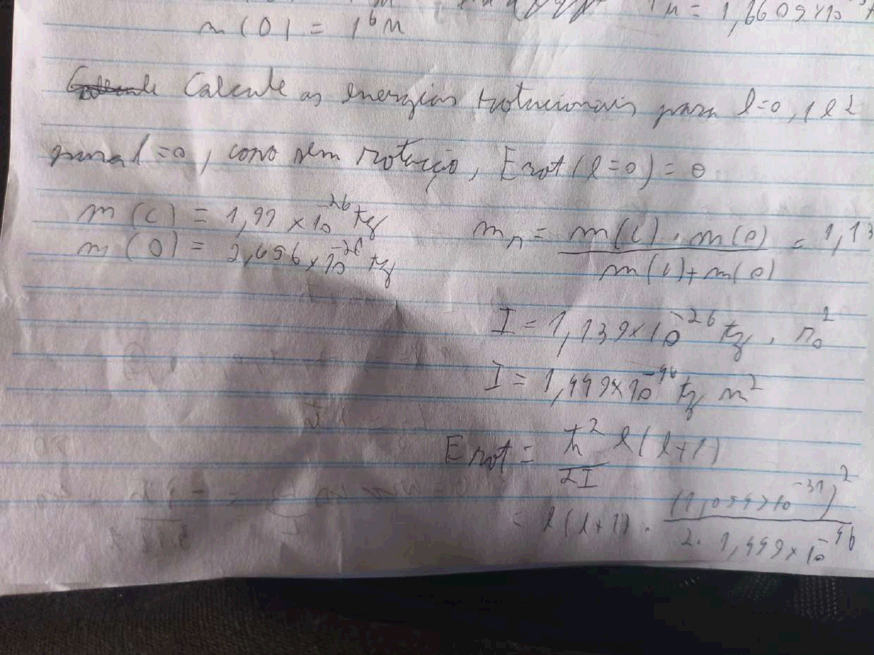 u = 1,6605×10
m(O) = 16u
Calcule as energias rotacionais para l=0,1 e 2
para l=0, caso sem rotação, Erot(l=0) = 0
m(C) = 1,99×10^-26 kg
m(O) = 2,656×10^-26 kg
m = m(C) . m(O) / m(C)+m(O) = 1,13
I = 1,139×10^-26 kg . r0^2
I = 1,449×10^-46 kg m^2
Erot = ħ^2/2I l(l+1)
= l(l+1) . (1,054×10^-34)^2 / 2. 1,449×10^-46